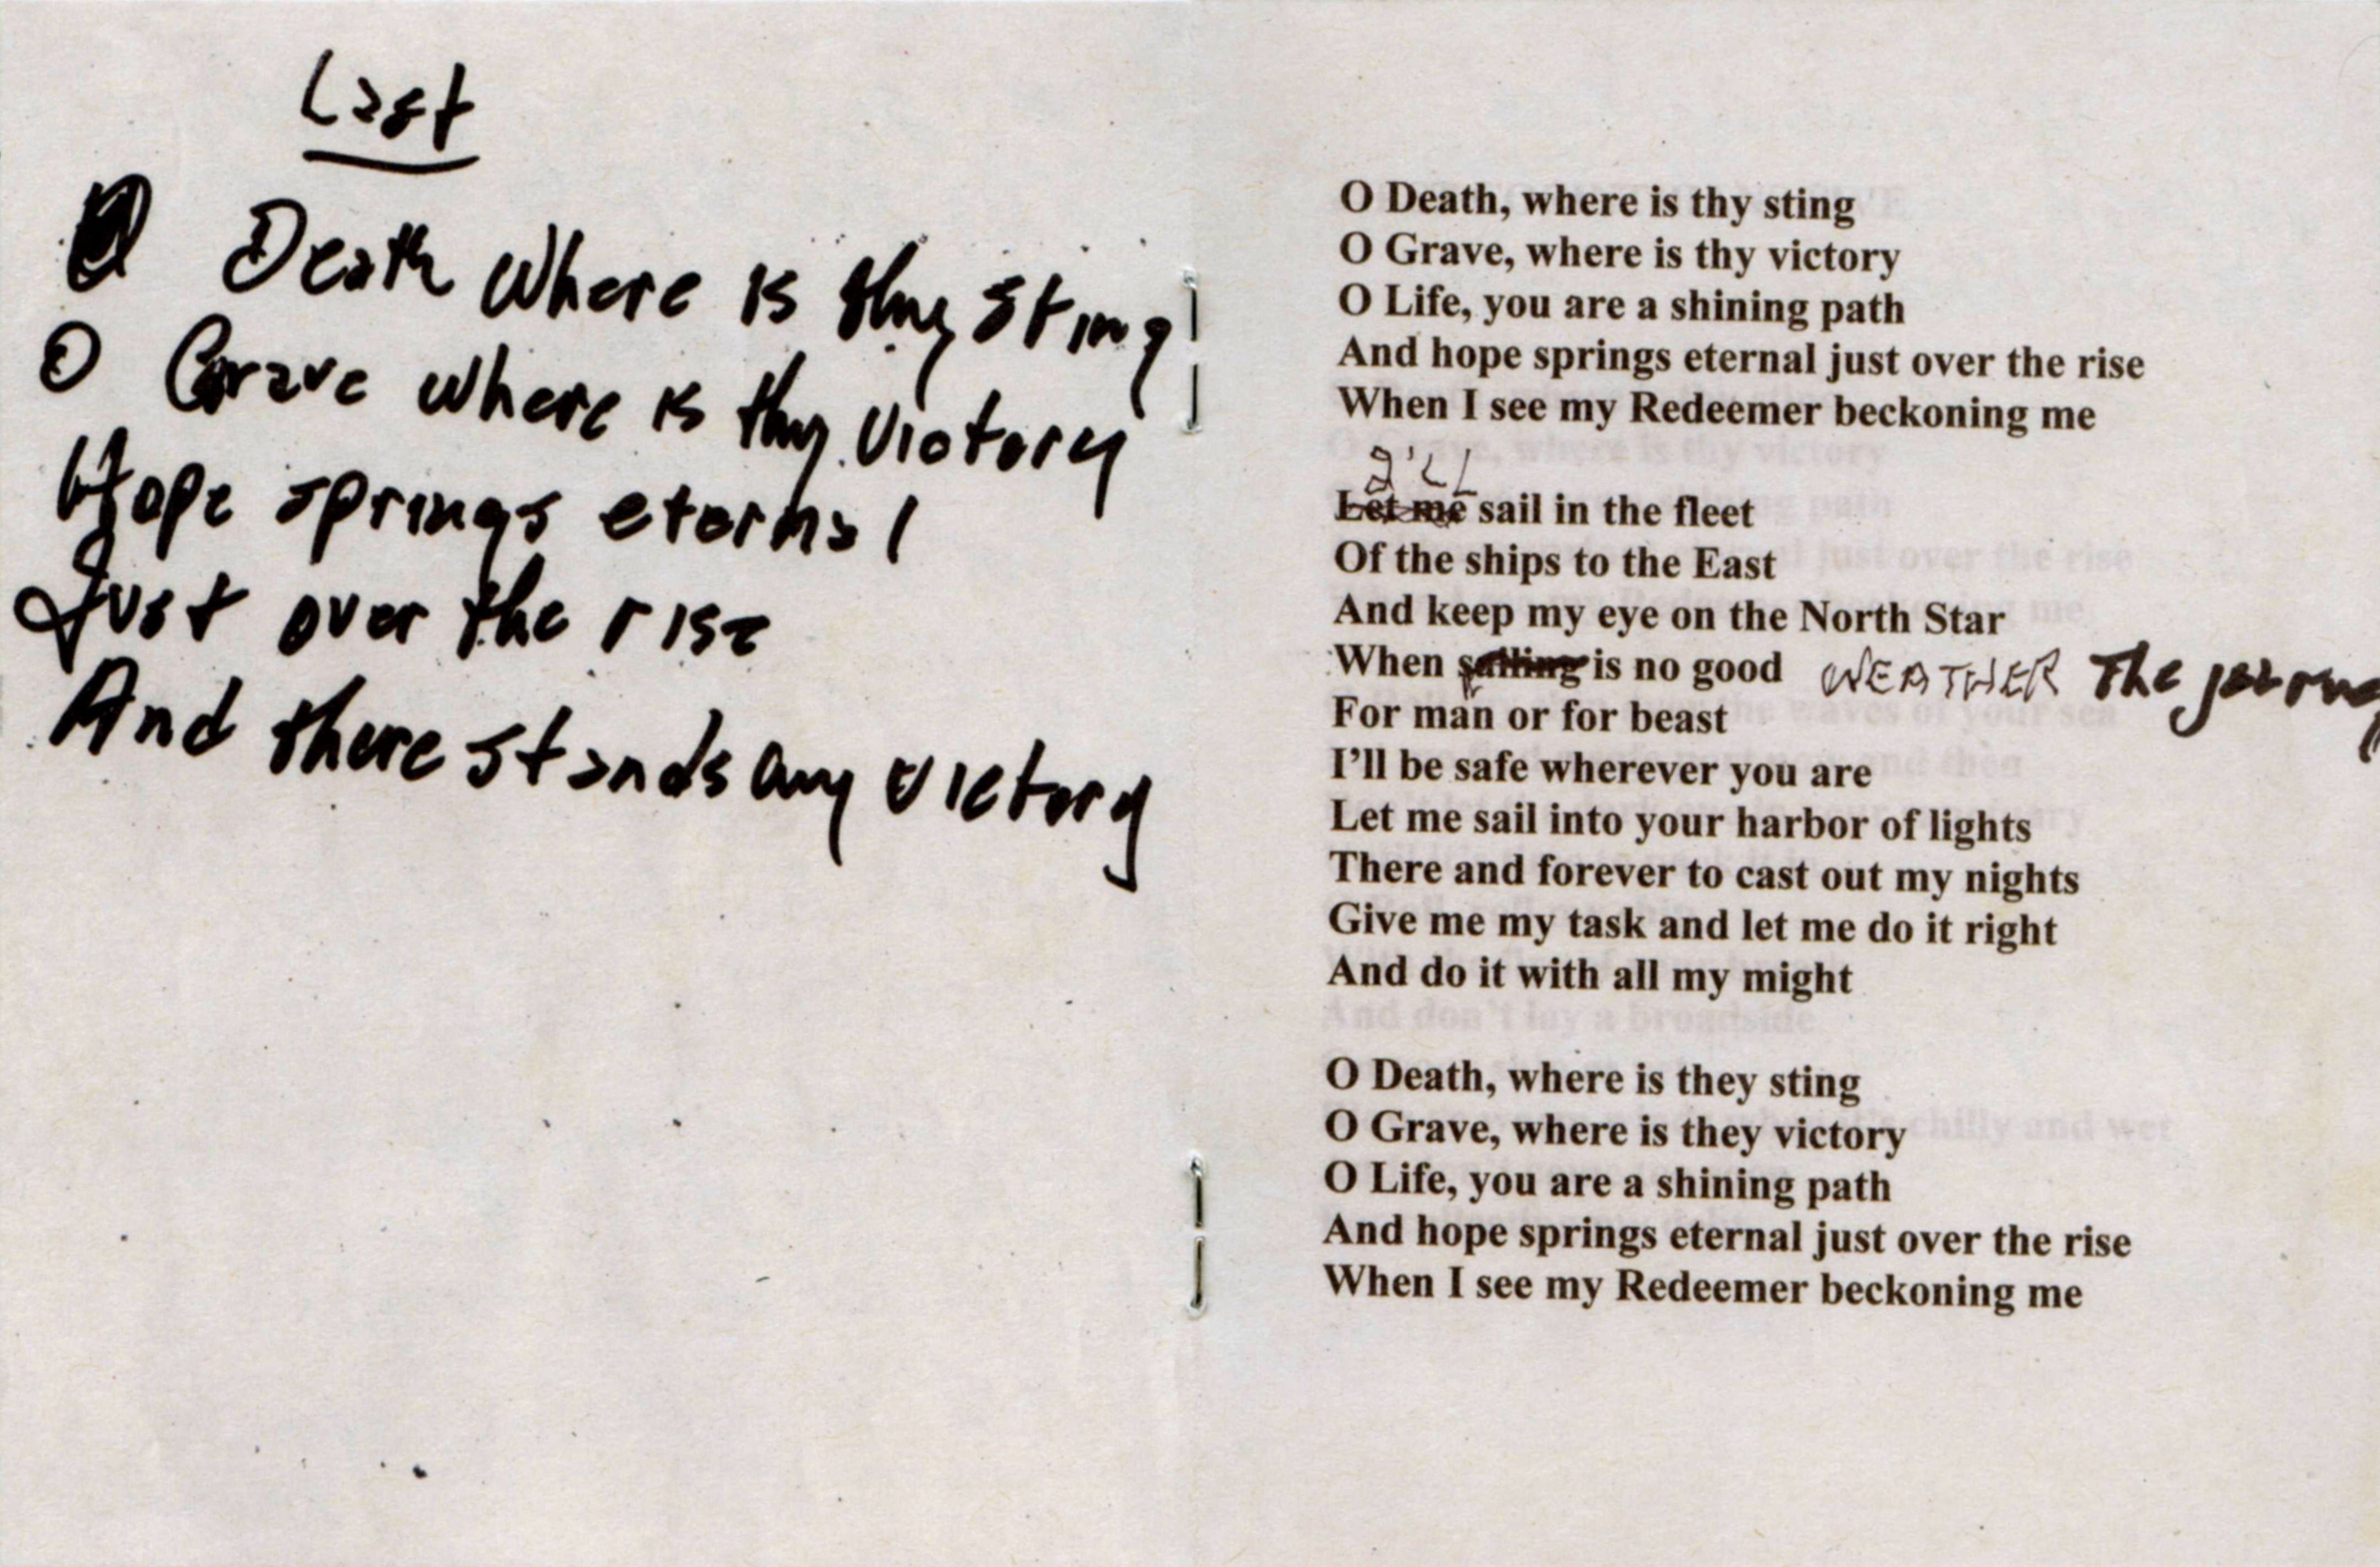 Last
O Death Where is thy sting
O Grave where is thy victory
Hope springs eternal
Just over the rise
And there stands my victory
O Death, where is thy sting
O Grave, where is thy victory
O Life, you are a shining path
And hope springs eternal just over the rise
When I see my Redeemer beckoning me
I'LL
Let me sail in the fleet
Of the ships to the East
And keep my eye on the North Star
When sailing is no good WEATHER The journey
For man or for beast
I'll be safe wherever you are
Let me sail into your harbor of lights
There and forever to cast out my nights
Give me my task and let me do it right
And do it with all my might
O Death, where is they sting
O Grave, where is they victory
O Life, you are a shining path
And hope springs eternal just over the rise
When I see my Redeemer beckoning me